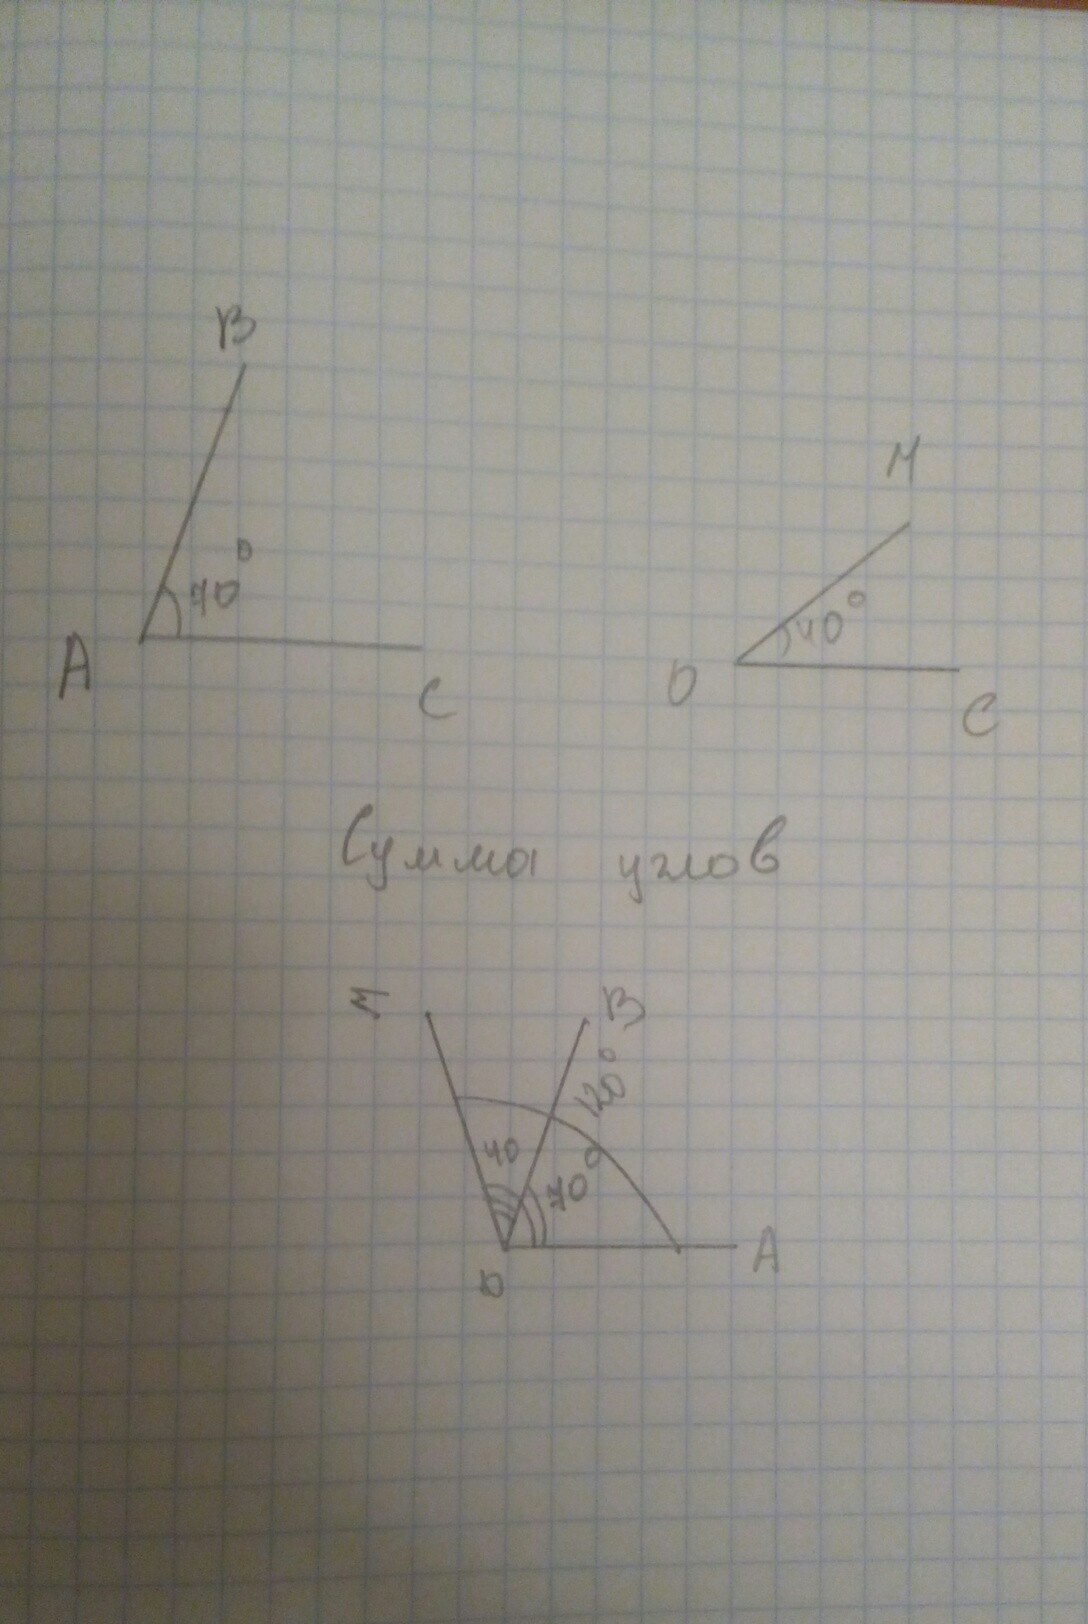 B
70°
A
C
M
40°
O
C
Сумма углов
M
B
120°
40
70°
O
A